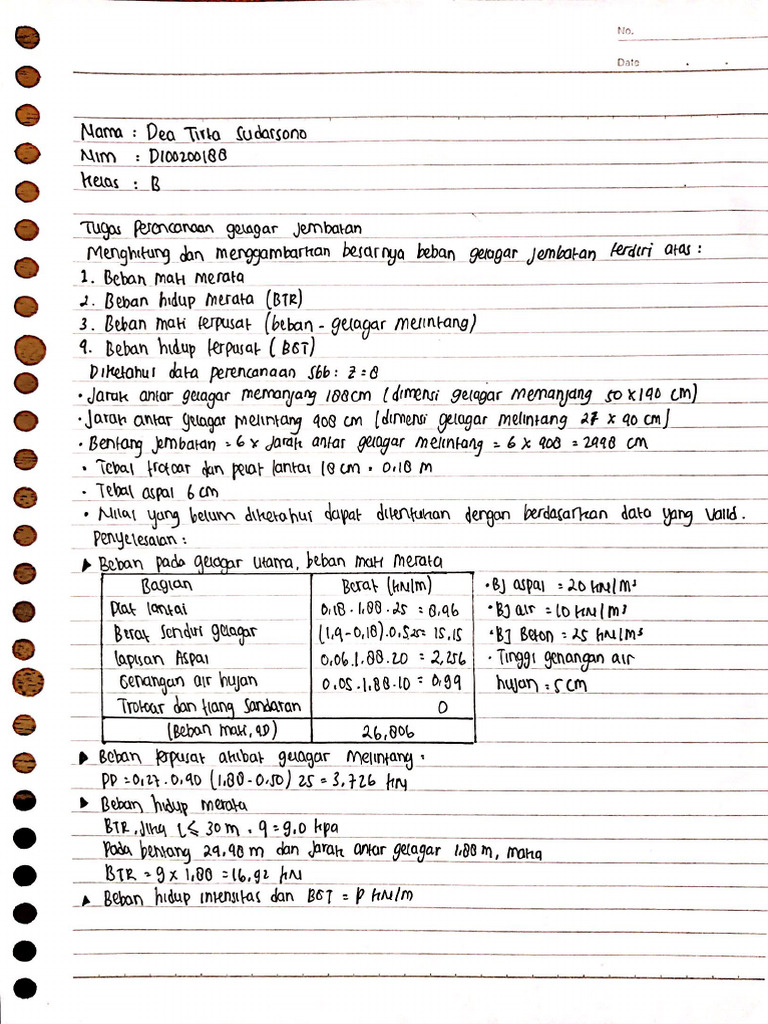 No.
Date
Nama : Dea Tirta Sudarsono
Nim : D100200188
Kelas : B
Tugas Perencanaan gelagar jembatan
Menghitung dan menggambarkan besarnya beban gelagar jembatan terdiri atas :
1. Beban mati merata
2. Beban hidup merata (BTR)
3. Beban mati terpusat (beban - gelagar melintang)
4. Beban hidup terpusat (BGT)
Diketahui data perencanaan sbb : z = 8
• Jarak antar gelagar memanjang 188 cm (dimensi gelagar memanjang 50 x 140 cm)
• Jarak antar gelagar melintang 408 cm (dimensi gelagar melintang 27 x 40 cm)
• Bentang jembatan = 6 x jarak antar gelagar melintang = 6 x 408 = 2448 cm
• Tebal trotoar dan pelat lantai 18 cm = 0,18 m
• Tebal aspal 6 cm
• Nilai yang belum diketahui dapat ditentukan dengan berdasarkan data yang valid.
Penyelesaian :
▶ Beban pada gelagar utama, beban mati merata
Bagian Berat (kN/m) • BJ aspal = 20 kN/m³
Plat lantai 0,18 . 1,88 . 25 = 8,46 • BJ air = 10 kN/m³
Berat sendiri gelagar (1,4 - 0,18) . 0,5 . 25 = 15,15 • BJ Beton = 25 kN/m³
Lapisan Aspal 0,06 . 1,88 . 20 = 2,256 • Tinggi genangan air
Genangan air hujan 0,05 . 1,88 . 10 = 0,94 hujan = 5 cm
Trotoar dan tiang Sandaran 0
(Beban mati, qD) 26,806
▶ Beban terpusat akibat gelagar Melintang .
PD = 0,27 . 0,40 (1,88 - 0,50) 25 = 3,726 kN
▶ Beban hidup merata
BTR, jika L ≤ 30 m . q = 9,0 kpa
Pada bentang 24,48 m dan Jarak antar gelagar 1,88 m, maka
BTR = 9 x 1,88 = 16,92 kN
▶ Beban hidup intensitas dan BGT = P kN/m